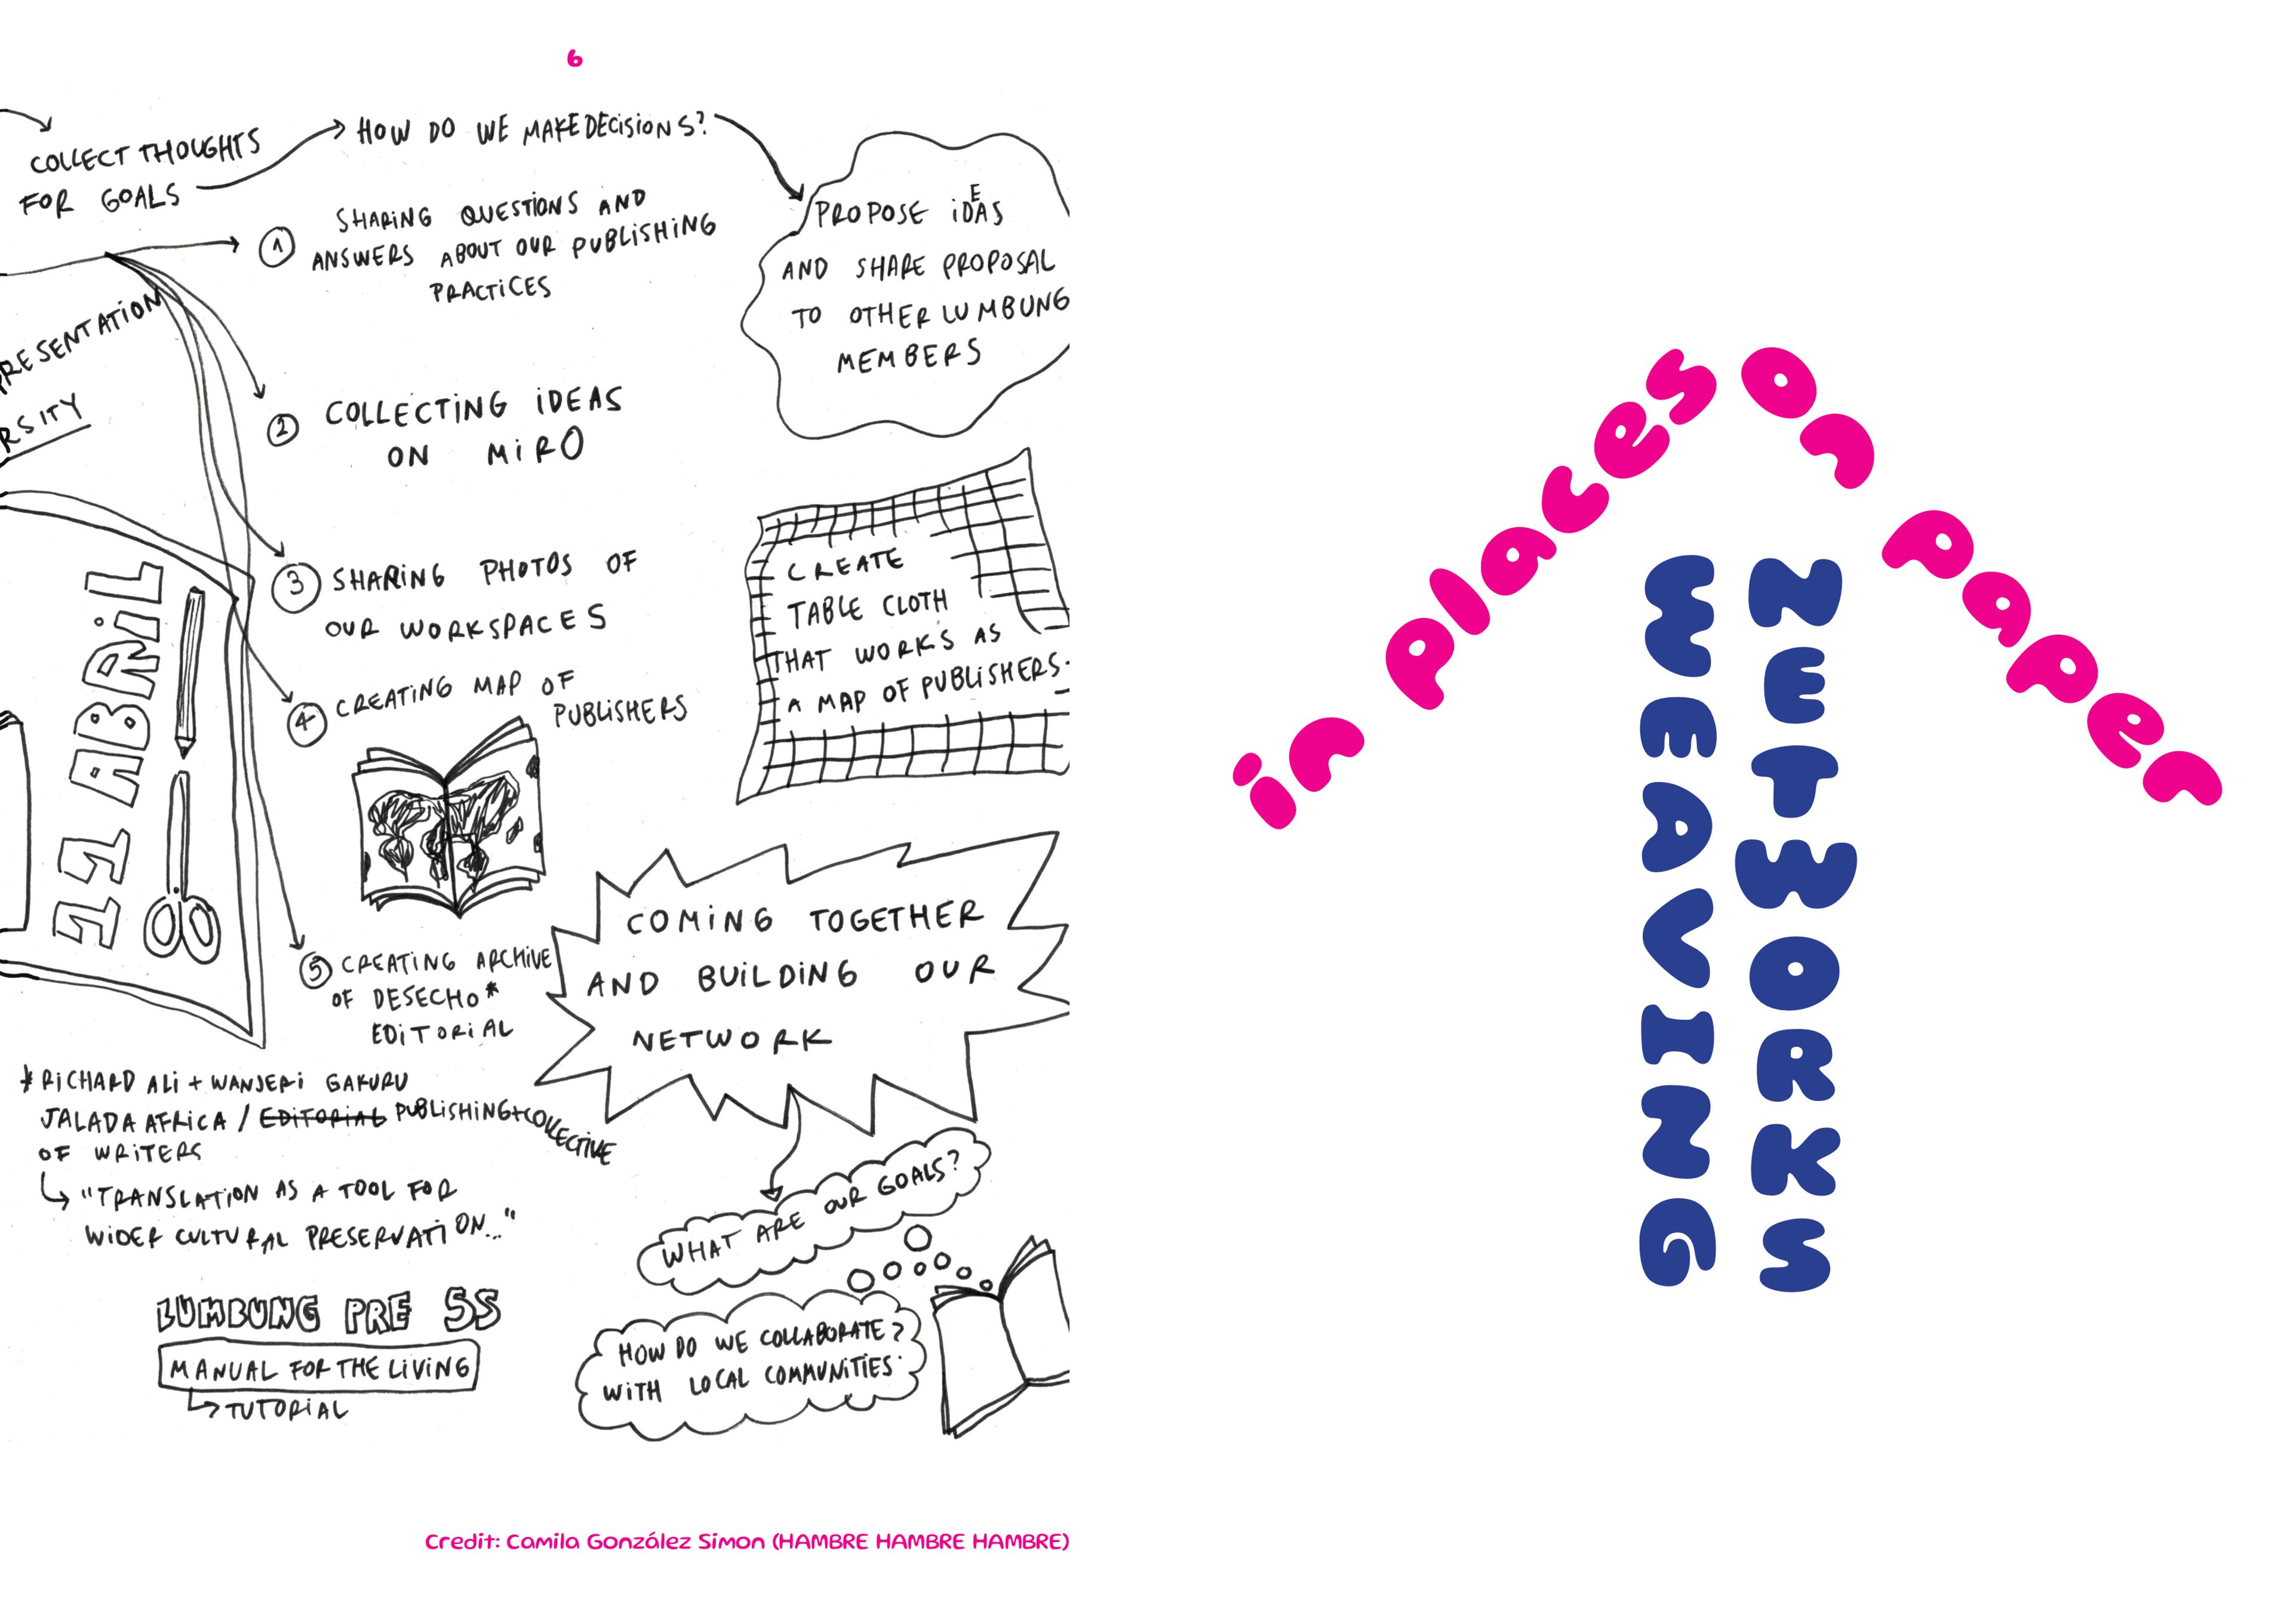 6
COLLECT THOUGHTS
FOR GOALS
HOW DO WE MAKE DECISIONS?
PROPOSE IDEAS
AND SHARE PROPOSAL
TO OTHER LUMBUNG
MEMBERS
1 SHARING QUESTIONS AND
ANSWERS ABOUT OUR PUBLISHING
PRACTICES
PRESENTATION
RSITY
2 COLLECTING IDEAS
ON MIRO
3 SHARING PHOTOS OF
OUR WORKSPACES
4 CREATING MAP OF
PUBLISHERS
11 ABRIL
CREATE
TABLE CLOTH
THAT WORKS AS
A MAP OF PUBLISHERS.
5 CREATING ARCHIVE
OF DESECHO*
EDITORIAL
COMING TOGETHER
AND BUILDING OUR
NETWORK
* RICHARD ALI + WANJERI GAKURU
JALADA AFRICA / EDITORIAL PUBLISHING+COLLECTIVE
OF WRITERS
"TRANSLATION AS A TOOL FOR
WIDER CULTURAL PRESERVATION..."
LUMBUNG PRESS
MANUAL FOR THE LIVING
TUTORIAL
WHAT ARE OUR GOALS?
HOW DO WE COLLABORATE?
WITH LOCAL COMMUNITIES
Credit: Camila González Simon (HAMBRE HAMBRE HAMBRE)
in places on paper
WEAVING
NETWORKS